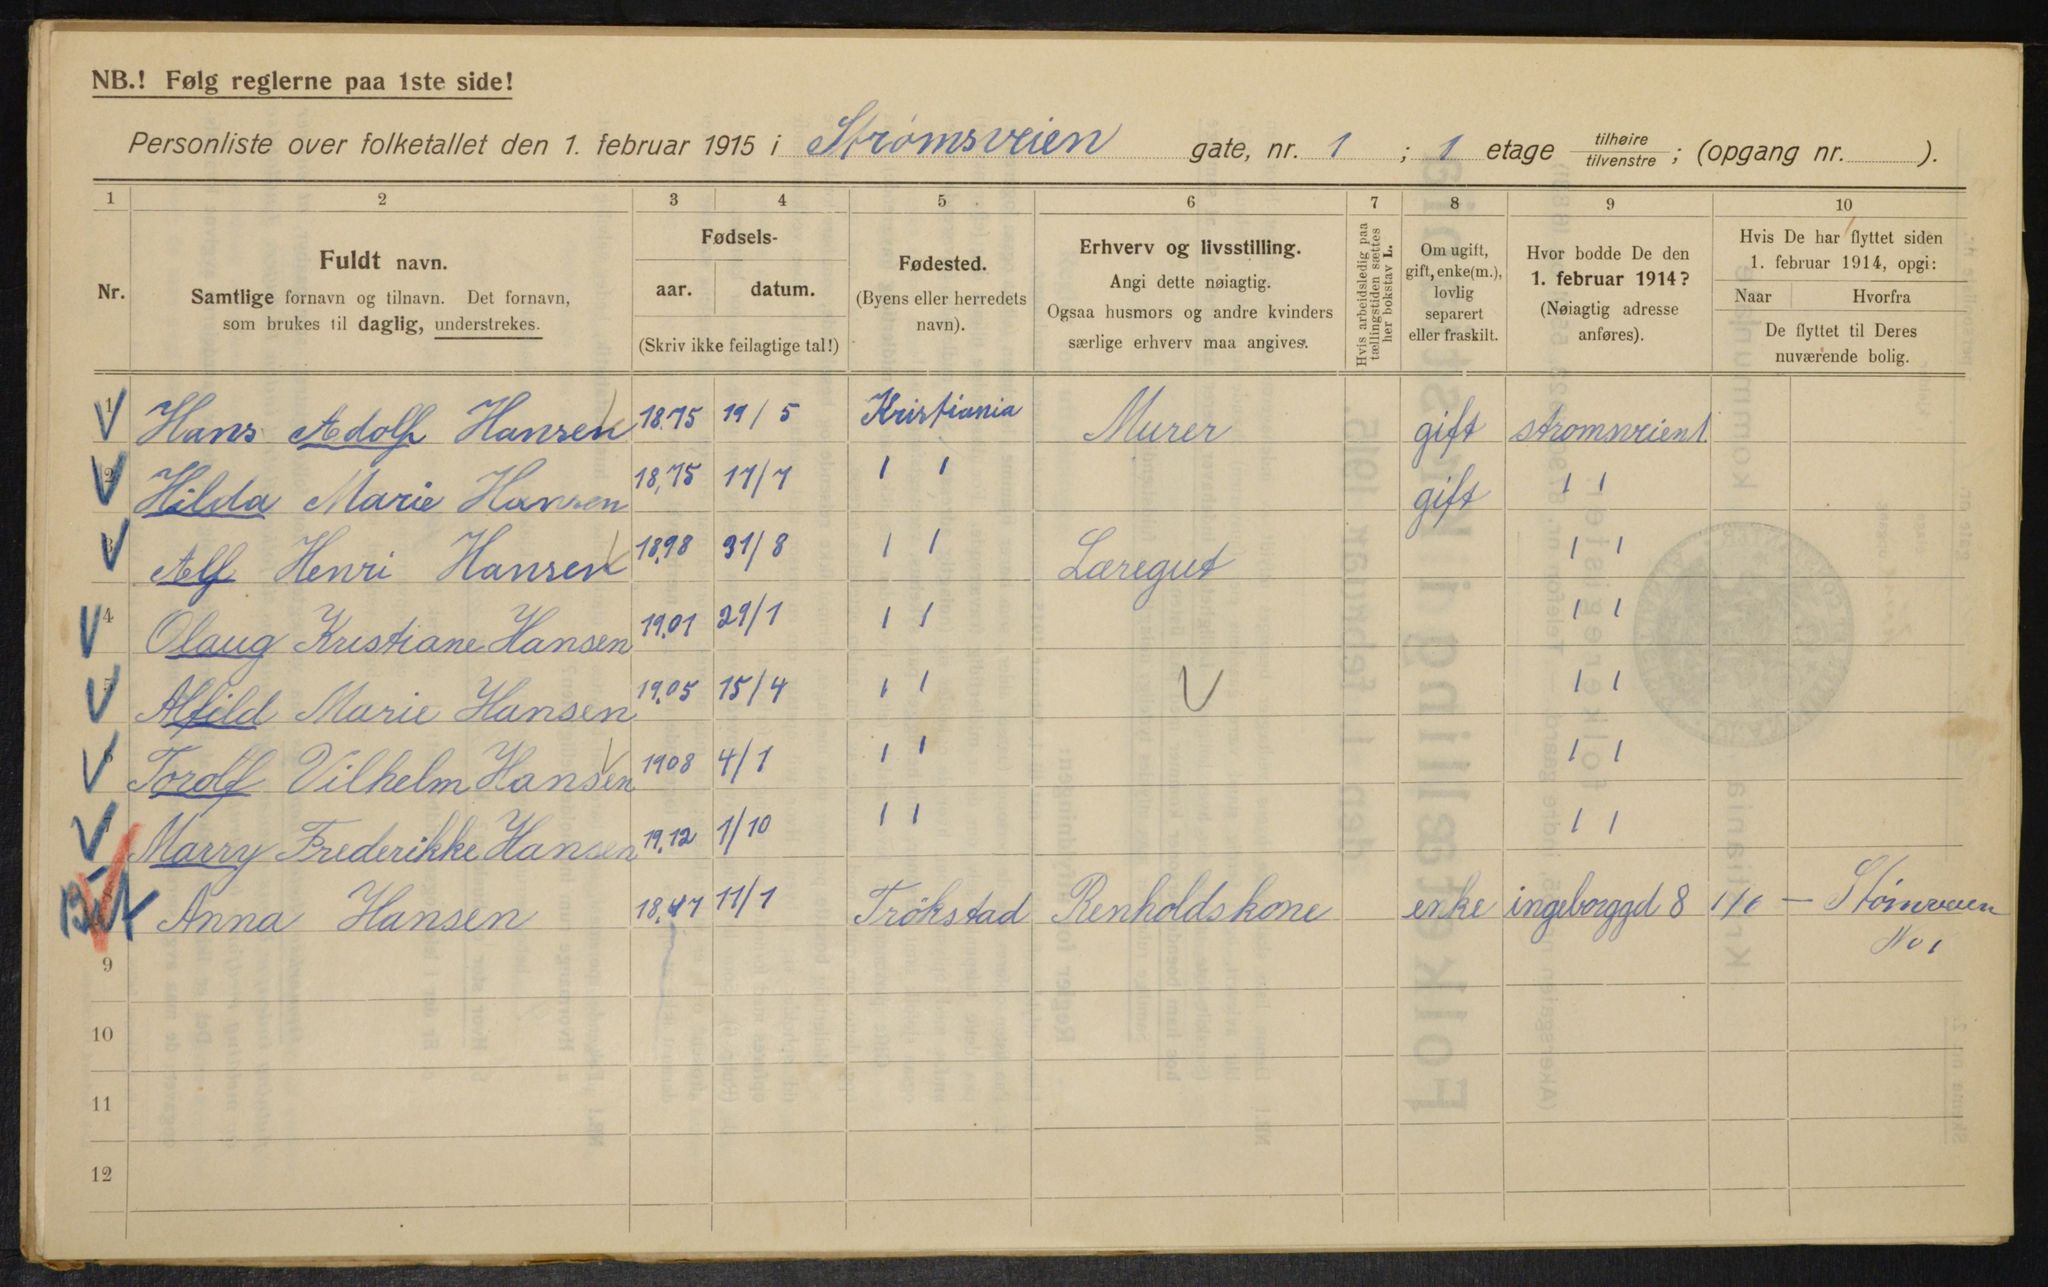 NB.! Følg reglerne paa 1ste side!
Personliste over folketallet den 1. februar 1915 i Strømsveien gate, nr. 1 ; 1 etage tilhøire tilvenstre ; (opgang nr. ).
1 2 3 4 5 6 7 8 9 10
Nr.
Fuldt navn.
Samtlige fornavn og tilnavn. Det fornavn,
som brukes til daglig, understrekes.
Fødsels-
aar. datum.
(Skriv ikke feilagtige tal!)
Fødested.
(Byens eller herredets
navn).
Erhverv og livsstilling.
Angi dette nøiagtig.
Ogsaa husmors og andre kvinders
særlige erhverv maa angives.
Hvis arbeidsledig paa
tællingstiden sættes
her bokstav L.
Om ugift,
gift, enke(m.),
lovlig
separert
eller fraskilt.
Hvor bodde De den
1. februar 1914?
(Nøiagtig adresse
anføres).
Hvis De har flyttet siden
1. februar 1914, opgi:
Naar Hvorfra
De flyttet til Deres
nuværende bolig.
1 Hans Adolf Hansen 1875 19/5 Kristiania Murer gift stromsveien 1
2 Hilda Marie Hansen 1875 17/7 " gift "
3 Alf Henri Hansen 1898 31/8 " Læregut "
4 Olaug Kristiane Hansen 1901 29/1 " "
5 Alfild Marie Hansen 1905 15/4 " "
6 Torolf Vilhelm Hansen 1908 4/1 " "
Marry Frederikke Hansen 1912 1/10 " "
Anna Hansen 1847 11/1 Trökstad Renholdskone enke ingeborggd 8 — Strømveien
No 1
9
10
11
12